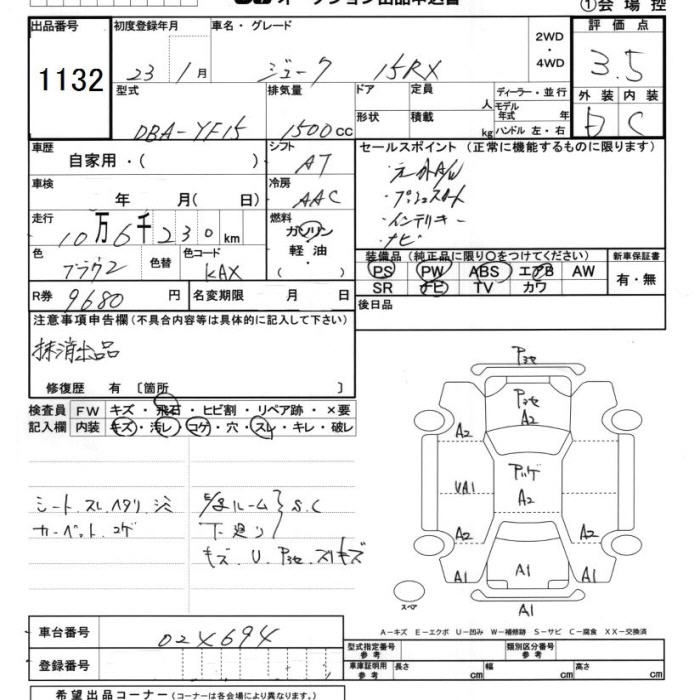 オークション出品申込書
①会場控
出品番号
1132
初度登録年月
車名・グレード
23年1月
ジューク 15RX
2WD
・
4WD
評価点
3.5
型式
DBA-YF15
排気量
1500cc
ドア
定員
人
形状
積載
kg
ディーラー・並行
モデル年式 年
ハンドル 左・右
外装 内装
C
車歴
自家用・( )
シフト
AT
セールスポイント (正常に機能するものに限ります)
・プッシュスタート
・インテリキー
・ナビ
車検
年 月(日)
冷房
AAC
走行
10万6千230km
燃料
ガソリン
軽油
・( )
色
色替
色コード
KAX
装備品(純正品に限り○をつけてください)
PS PW ABS エアB AW
SR ナビ TV カワ
新車保証書
有・無
R券
9680円
名変期限 月 日
後日品
注意事項申告欄(不具合内容等は具体的に記入して下さい)
抹消出品
修復歴 有 〔箇所 〕
検査員
記入欄
FW キズ・飛石・ヒビ割・リペア跡・×要
内装 キズ・汚レ・コゲ・穴・スレ・キレ・破レ
シート スレ ヘタリ シミ
カーペット コゲ
下廻り
S.C
A2
A2
A2
VA1
A2
A2
A2
A1
A1
A1
A1
スペア
A-キズ E-エクボ U-凹み W-補修跡 S-サビ C-腐食 XX-交換済
車台番号
024694
登録番号
型式指定番号
参考
類別区分番号
参考
車庫証明用
参考
長さ cm
幅 cm
高さ cm
希望出品コーナー (コーナーは各会場により異なります。)